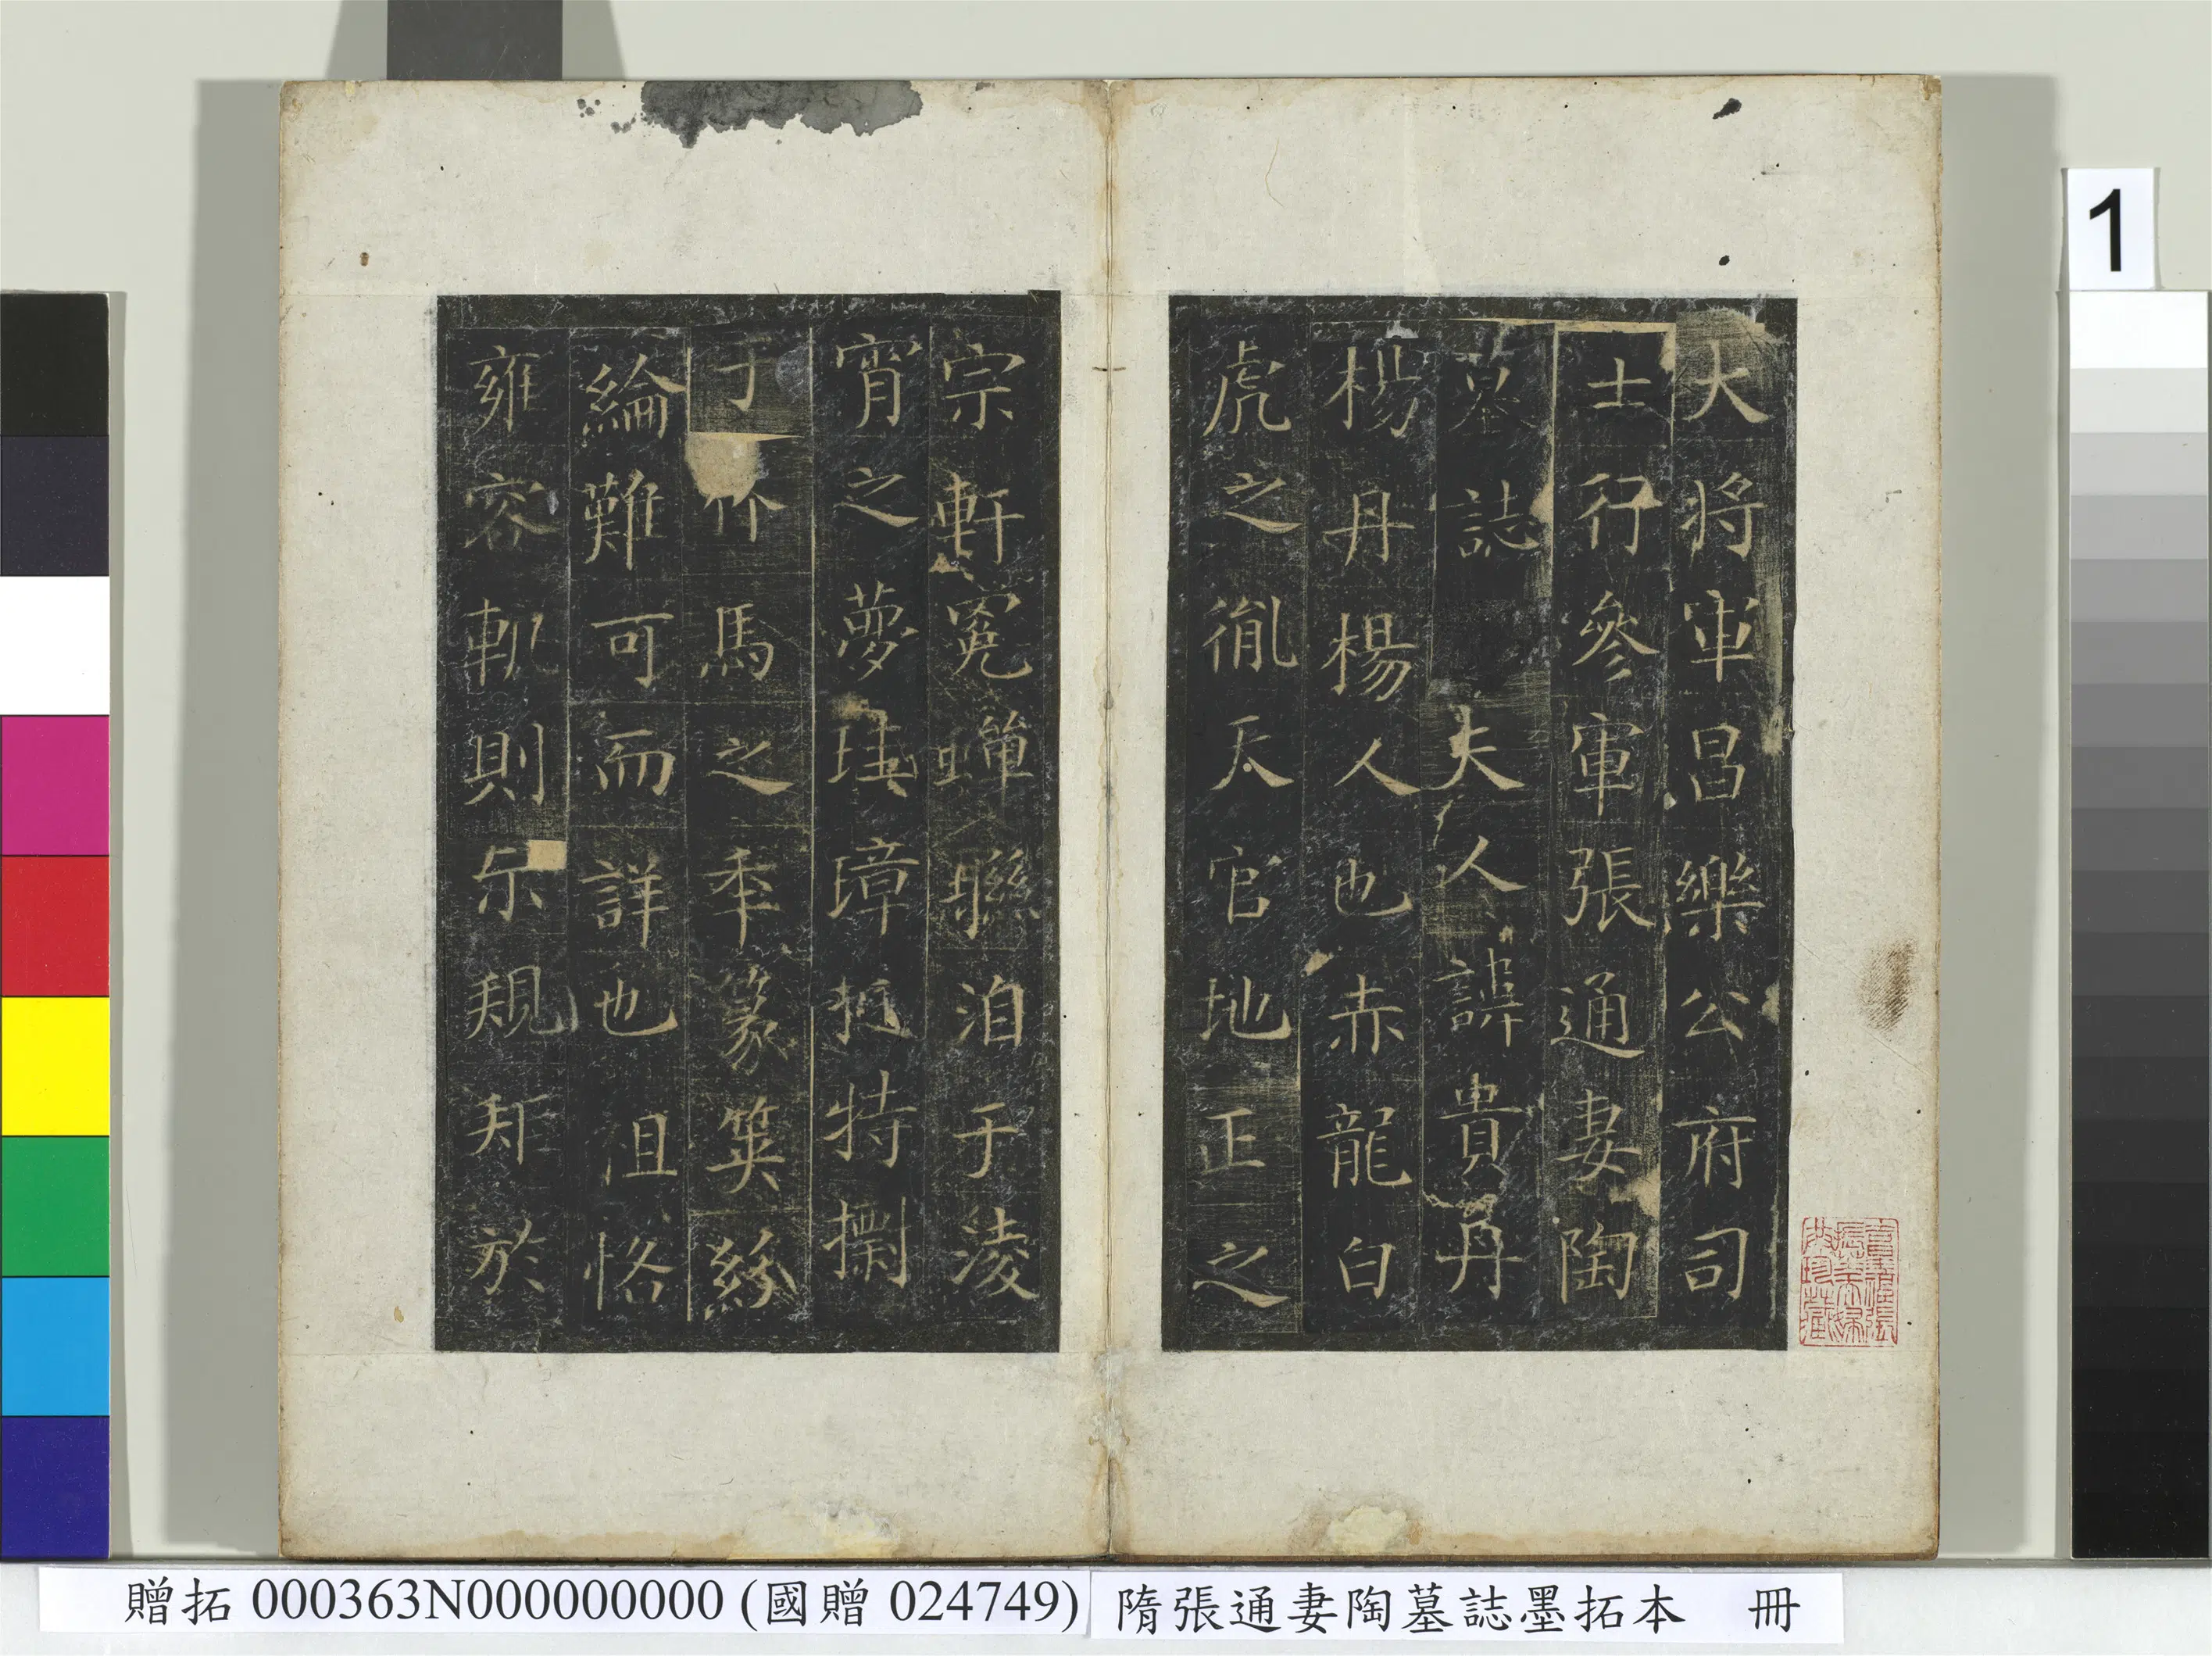 大將軍昌樂公府司
士行參軍張通妻陶
墓誌 夫人諱貴丹
楊丹楊人也赤龍白
虎之胤天官地正之
宗軒冕蟬聯洎于淩
宵之夢珪璋挺特摛
于竹馬之季篆笧絲
綸難可而詳也沮恪
雍容軌則示規矩於
1
贈拓 000363N000000000 (國贈 024749)
隋張通妻陶墓誌墨拓本 冊